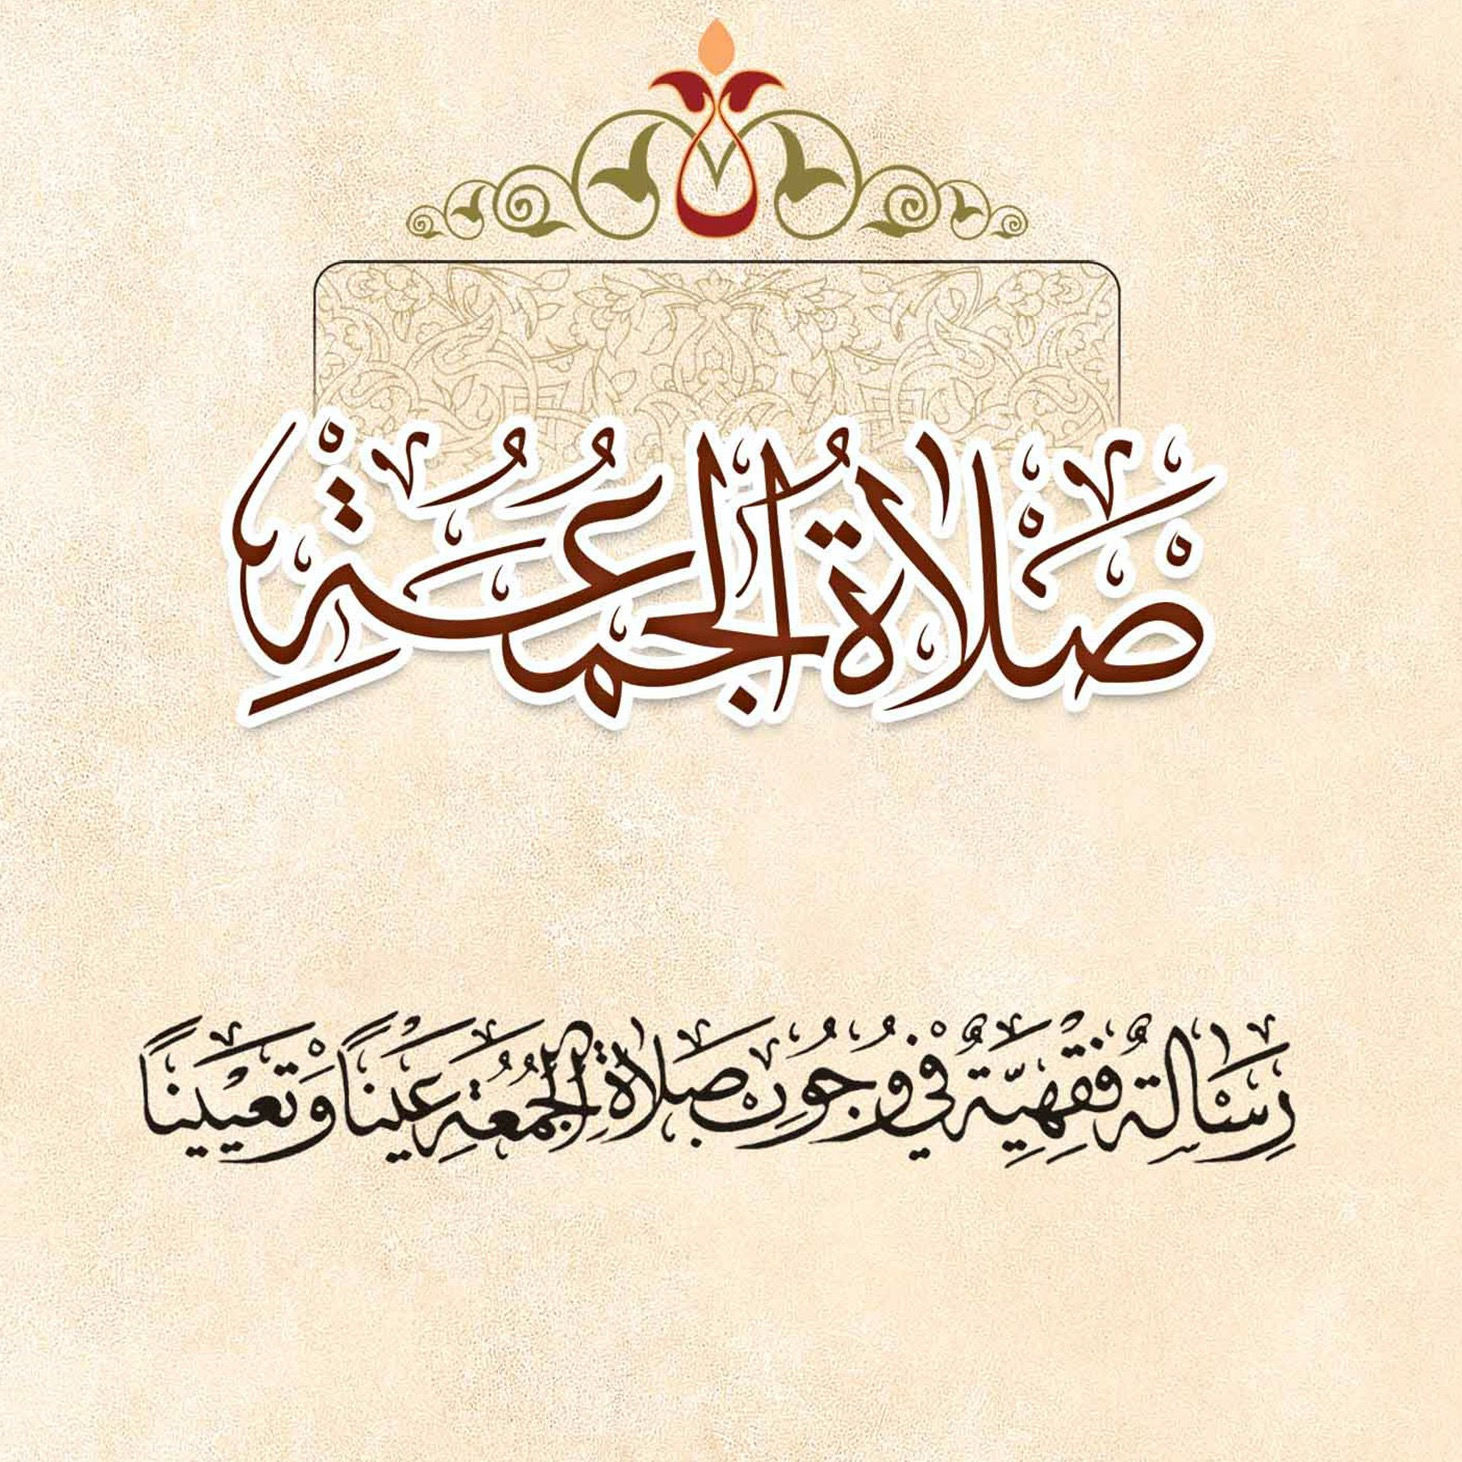 صَلَاةُ الْجُمُعَةِ
رِسَالَةٌ فِقْهِيَّةٌ فِي وُجُوبِ صَلَاةِ الْجُمُعَةِ عَيْنًا وَتَعْيِينًا